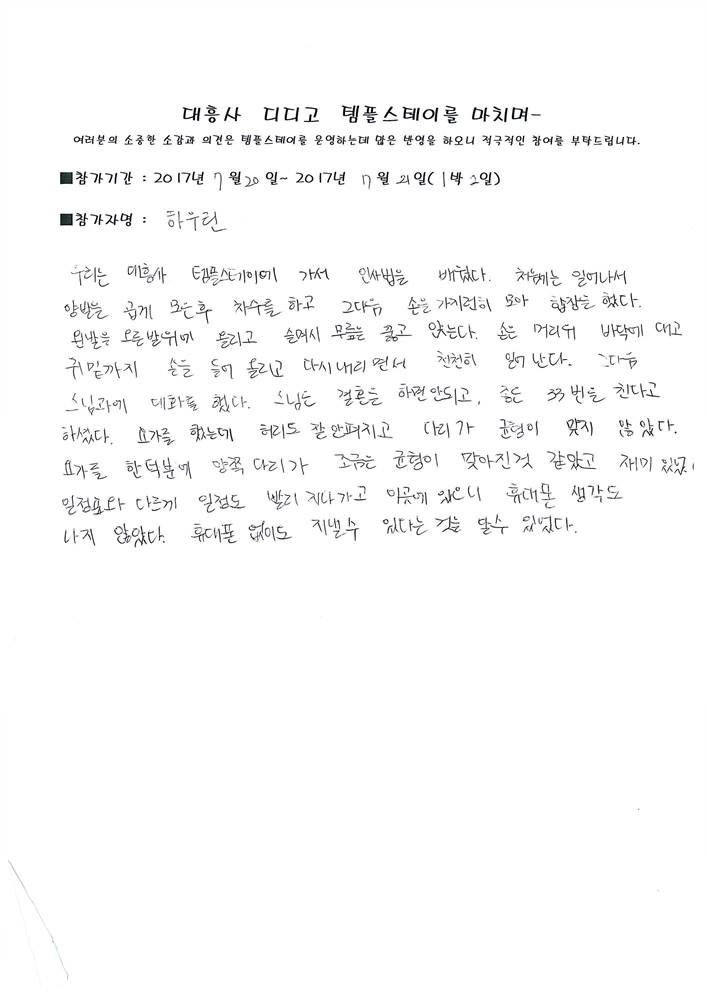 대흥사 디디고 템플스테이를 마치며-
여러분의 소중한 소감과 의견은 템플스테이를 운영하는데 많은 반영을 하오니 적극적인 참여를 부탁드립니다.
■참가기간 : 2017년 7월 20일~ 2017년 7월 21일( 1박 2일)
■참가자명 : 하우런
우리는 대흥사 템플스테이에 가서 인사법을 배웠다. 처음에는 일어나서
양발을 곱게 모은후 차수를 하고 그다음 손을 가지런히 모아 합장을 했다.
왼발을 오른발위에 올리고 슬며시 무릎을 꿇고 앉는다. 손은 머리뒤 바닥에 대고
귀밑까지 손을 들어 올리고 다시내리면서 천천히 일어난다. 그다음
스님과에 대화를 했다. 스님은 결혼을 하면안되고, 종은 33번을 친다고
하셨다. 요가를 했는데 허리도 잘안펴지고 다리가 균형이 맞지 않았다.
요가를 한덕분에 양쪽다리가 조금은 균형이 맞아진것 같았고 재미있었
일정표와 다르게 일정도 빨리 지나가고 이곳에 있으니 휴대폰 생각도
나지 않았다. 휴대폰 없이도 지낼수 있다는 것을 알수 있었다.